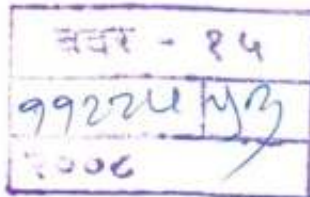 बदर - १५
११२२५
२००८